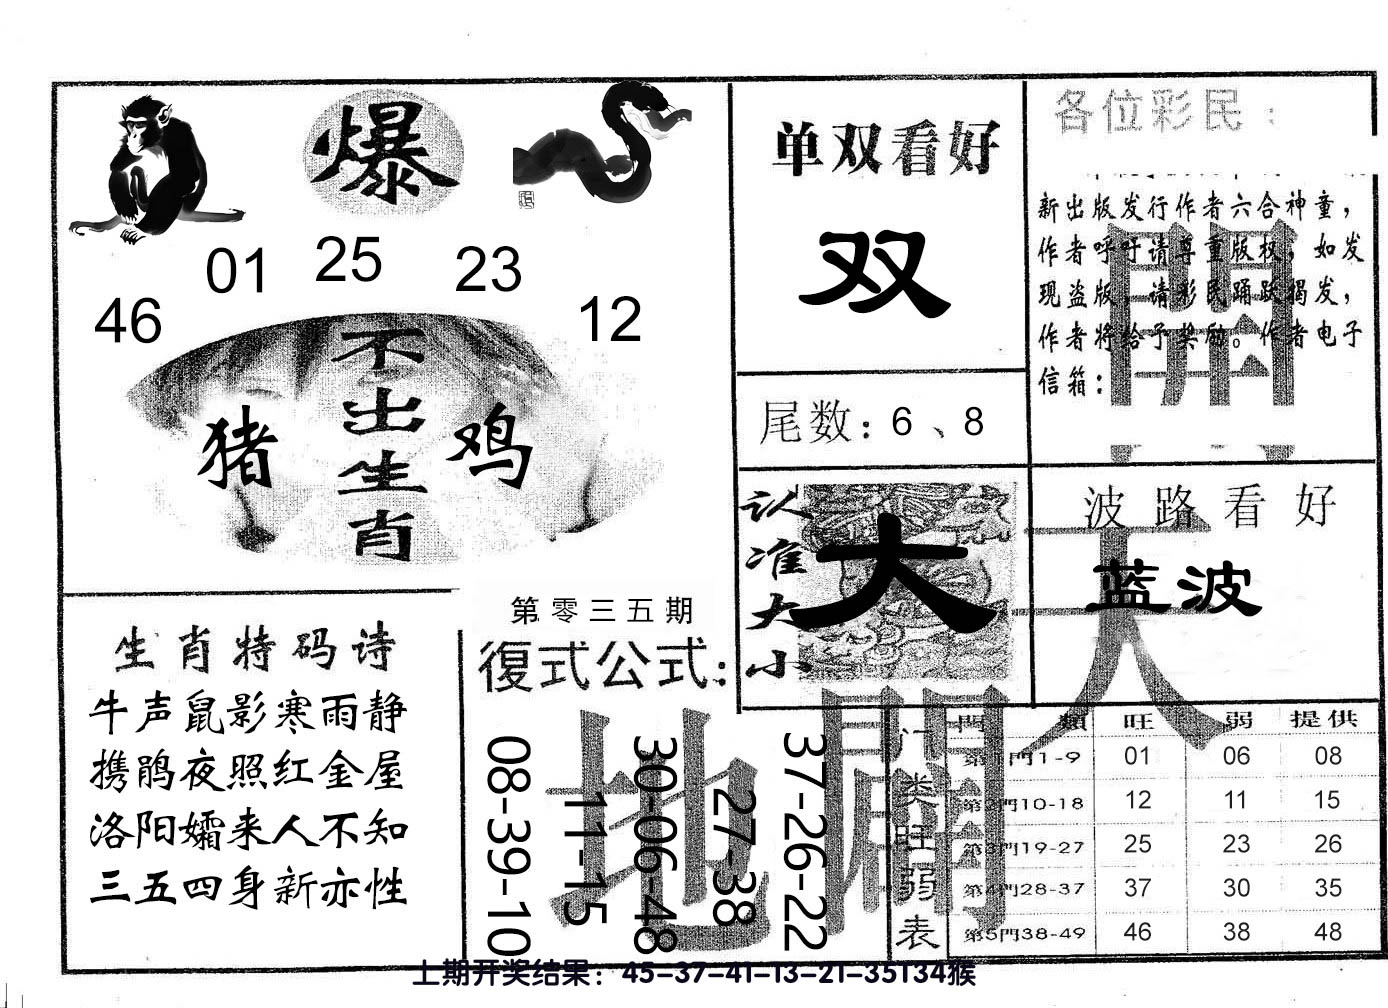 爆
46
01
25
23
12
不出生肖
猪
鸡
单双看好
双
尾数：6、8
各位彩民：
新出版发行作者六合神童，
作者呼吁请尊重版权，如发
现盗版，请彩民踊跃揭发，
作者将给予奖励。作者电子
信箱：
認准大小
大
波路看好
蓝波
生肖特码诗
牛声鼠影寒雨静
携鹃夜照红金屋
洛阳孀来人不知
三五四身新亦性
第零三五期
復式公式：
08-39-10
11-15
30-06-48
27-38
37-26-22
天
地
開
门类旺弱表
門 類 旺 弱 提供
第1門1-9 01 06 08
第2門10-18 12 11 15
第3門19-27 25 23 26
第4門28-37 37 30 35
第5門38-49 46 38 48
上期开奖结果：45-37-41-13-21-35T34猴